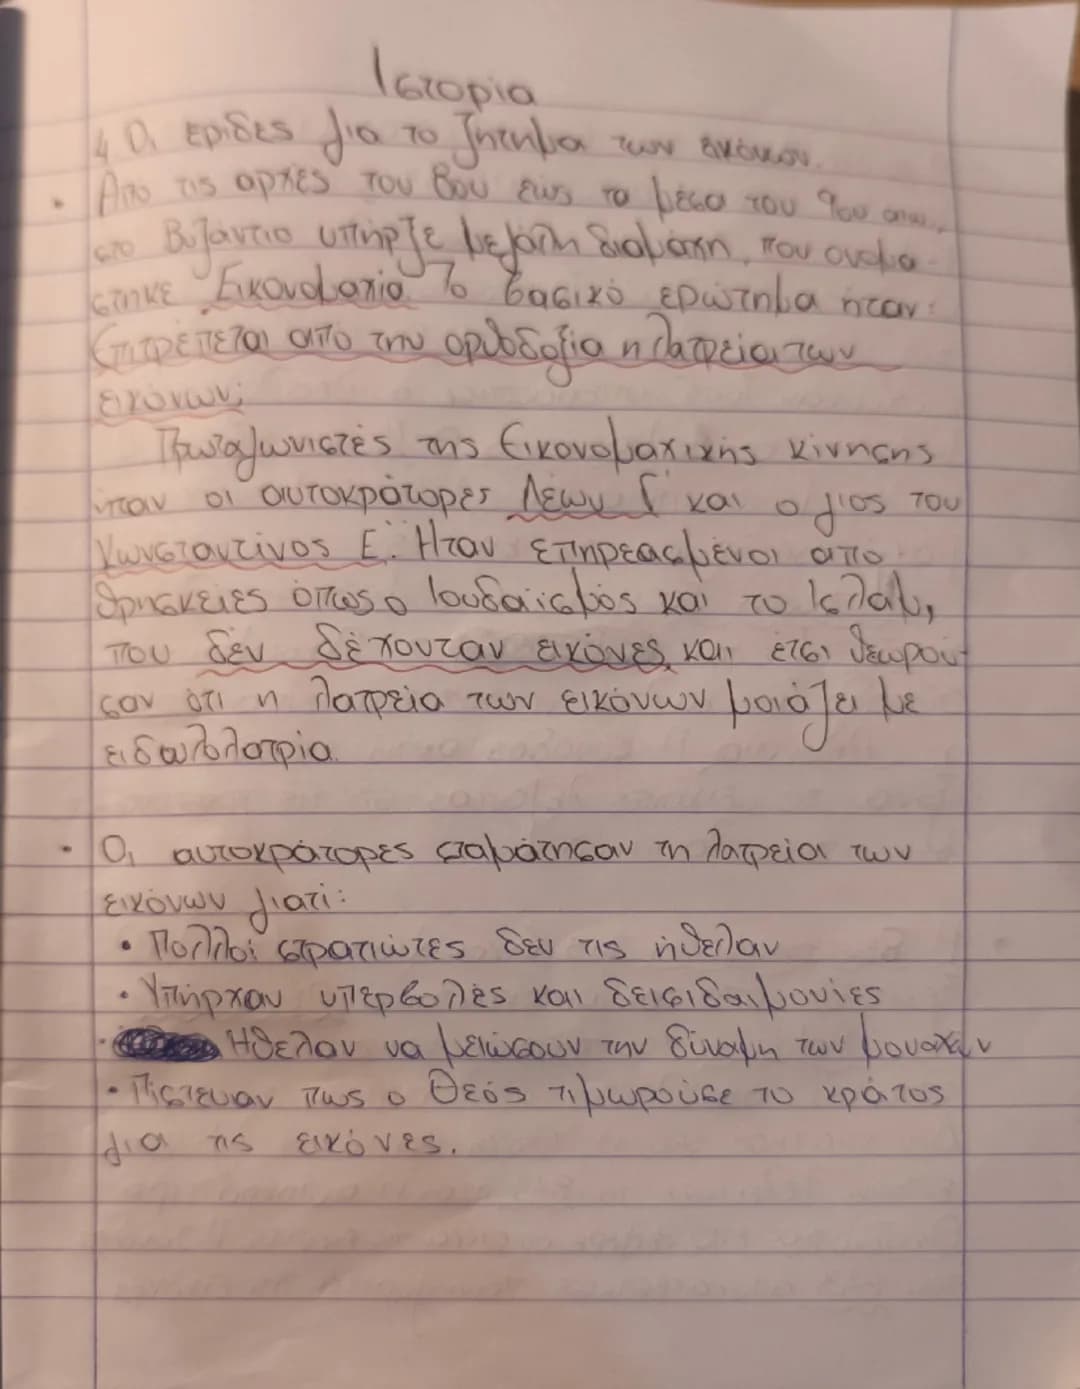 Ιστορία
4 Οι εριδες για το ζητημα των εικόνων.
• Απο τις αρχες του 8ου εως τα μέσα του 9ου αιω.,
στο Βυζάντιο υπήρξε μεγάλη διαμάχη, που ονομα-
στηκε Εικονομαχία. Το βασικό ερώτημα ήταν:
Επιτρέπεται από την ορθοδοξία η λατρεία των
εικόνων;
Πρωταγωνιστές της Εικονομαχικής κίνησης
ήταν οι αυτοκράτορες Λέων Γ΄ και ο γιος του
Κωνσταντίνος Ε΄. Ηταν επηρεασμένοι από
θρησκείες όπως ο Ιουδαϊσμός και το Ισλάμ,
που δέν δέχονταν εικόνες, και έτσι θεωρού-
σαν ότι η λατρεία των εικόνων μοιάζει με
ειδωλολατρία.
• Οι αυτοκράτορες σταμάτησαν τη λατρεία των
εικόνων γιατί:
• Πολλοί στρατιώτες δεν τις ήθελαν
• Υπήρχαν υπερβολές και δεισιδαιμονίες
• Ηθελαν να μειώσουν την δύναμη των μοναχών
• Πίστευαν πως ο Θεός τιμωρούσε το κράτος
για τις εικόνες.